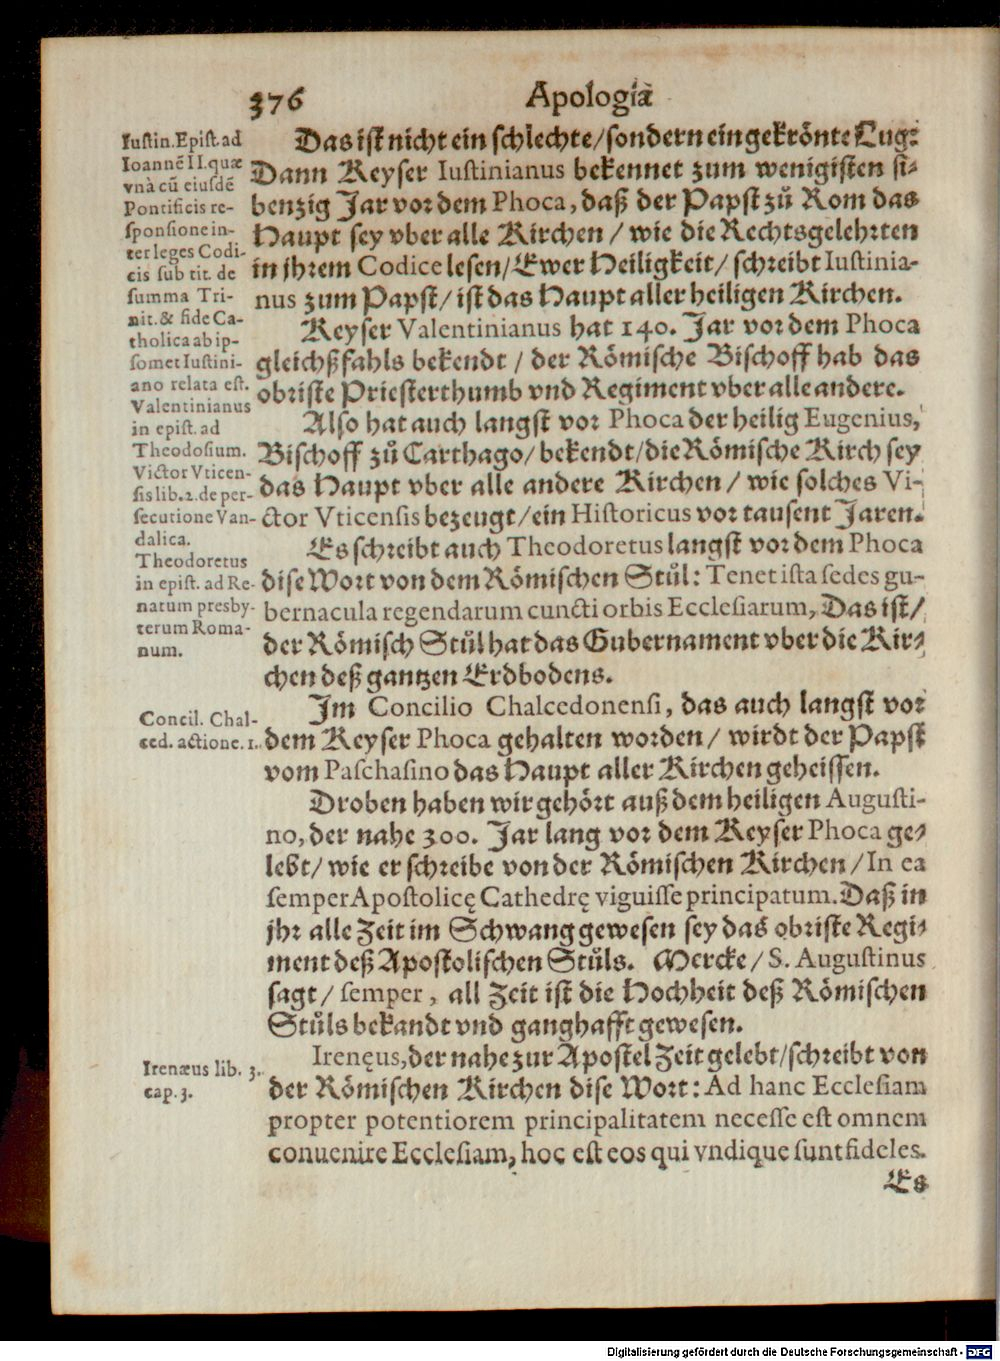 376
Apologiæ
Iustin. Epist. ad
Ioannē II. quæ
vnà cū eiusdē
Pontificis re-
sponsione in-
ter leges Codi-
cis sub tit. de
summa Tri-
nit. & fide Ca-
tholica ab ip-
somet Iustini-
ano relata est.
Valentinianus
in epist. ad
Theodosium.
Victor Vticen-
sis lib. 2. de per-
secutione Van-
dalica.
Theodoretus
in epist. ad Re-
natum presby-
terum Roma-
num.
Concil. Chal-
ced. actione. 1.
Irenæus lib. 3.
cap. 3.
Das ist nicht ein schlechte/ sondern ein gekrönte Lug:
Dann Keyser Iustinianus bekennet zum wenigisten si-
benzig Jar vor dem Phoca, daß der Papst zů Rom das
Haupt sey vber alle Kirchen/ wie die Rechtsgelehrten
in jhrem Codice lesen/ Ewer Heiligkeit/ schreibt Iustinia-
nus zum Papst/ ist das Haupt aller heiligen Kirchen.
Keyser Valentinianus hat 140. Jar vor dem Phoca
gleichßfahls bekendt/ der Römische Bischoff hab das
obriste Priesterthumb vnd Regiment vber alle andere.
Also hat auch langst vor Phoca der heilig Eugenius,
Bischoff zů Carthago/ bekendt/ die Römische Kirch sey
das Haupt vber alle andere Kirchen/ wie solches Vi-
ctor Vticensis bezeugt/ ein Historicus vor tausent Jaren.
Es schreibt auch Theodoretus langst vor dem Phoca
dise Wort von dem Römischen Stůl: Tenet ista sedes gu-
bernacula regendarum cuncti orbis Ecclesiarum, Das ist/
der Römisch Stůl hat das Gubernament vber die Kir-
chen deß gantzen Erdbodens.
Im Concilio Chalcedonensi, das auch langst vor
dem Keyser Phoca gehalten worden/ wirdt der Papst
vom Paschasino das Haupt aller Kirchen geheissen.
Droben haben wir gehört auß dem heiligen Augusti-
no, der nahe 300. Jar lang vor dem Keyser Phoca ge-
lebt/ wie er schreibe von der Römischen Kirchen/ In ea
semper Apostolicę Cathedrę viguisse principatum. Daß in
jhr alle Zeit im Schwang gewesen sey das obriste Regi-
ment deß Apostolischen Stůls. Mercke/ S. Augustinus
sagt/ semper, all Zeit ist die Hochheit deß Römischen
Stůls bekandt vnd ganghafft gewesen.
Irenęus, der nahe zur Apostel Zeit gelebt/ schreibt von
der Römischen Kirchen dise Wort: Ad hanc Ecclesiam
propter potentiorem principalitatem necesse est omnem
conuenire Ecclesiam, hoc est eos qui vndique sunt fideles.
Es
Digitalisierung gefördert durch die Deutsche Forschungsgemeinschaft - DFG